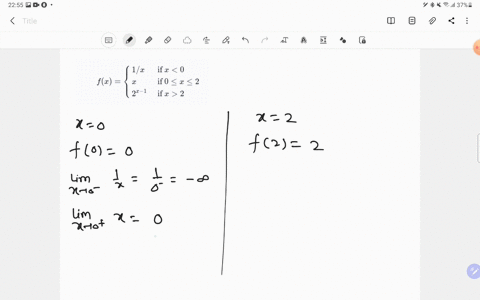 22:55 37%
Title
f(x) = { 1/x if x < 0
x if 0 ≤ x ≤ 2
2^{x−1} if x > 2
x = 0
f(0) = 0
lim x→0⁻ 1/x = 1/0⁻ = −∞
lim x→0⁺ x = 0
x = 2
f(2) = 2